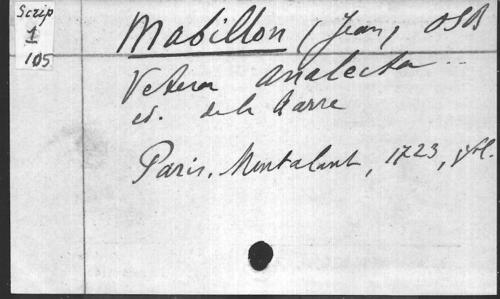 Scrip
1
105
Mabillon (Jean) OSB
Vetera analecta ..
ed. de la Barre
Paris, Montalant, 1723, fol.